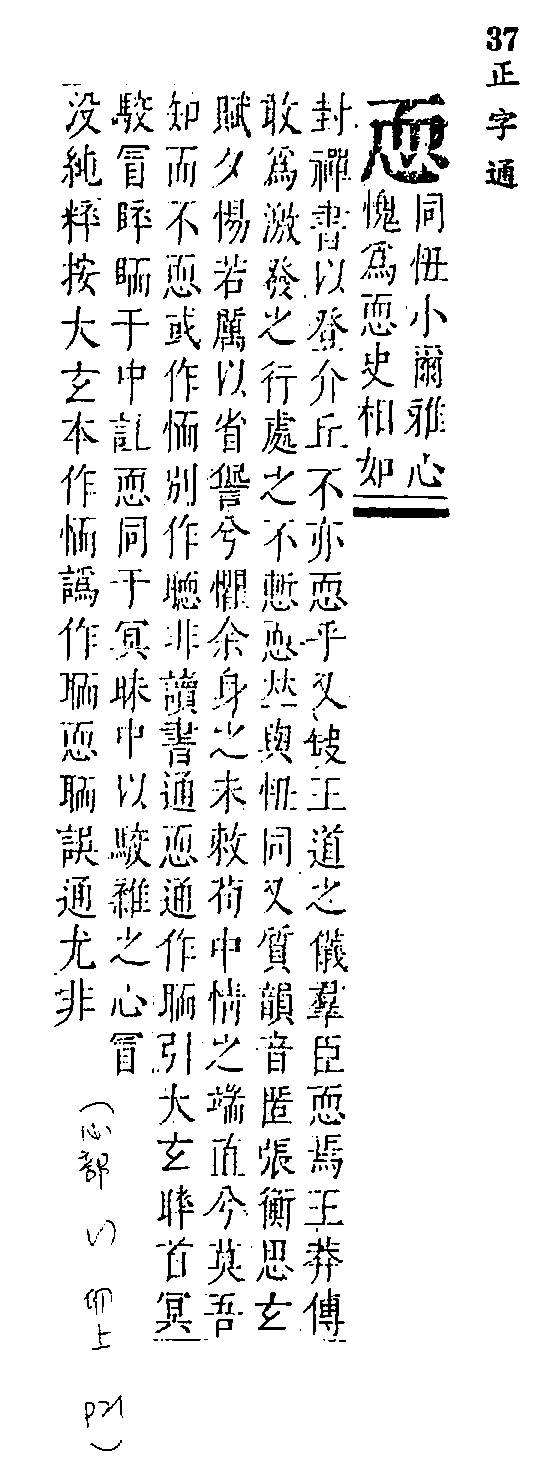 37 正字通
恧
同忸小爾雅心
愧爲恧史相如
封禪書以登介丘不亦恧乎又缺王道之儀羣臣恧焉王莽傳
敢爲激發之行處之不慙恧𠀤與忸同又質韻音匿張衡思玄
賦夕惕若厲以省諐兮懼余身之未敕苟中情之端直兮莫吾
知而不恧或作恧別作聰非讀書通恧通作䎡引大玄睟首冥
駮冒睟䎡于中註恧同于冥昧中以駮雜之心冒
没純粹按大玄本作㤡譌作䎡恧䎡誤通尤非
(心部 い 卯上 P21)